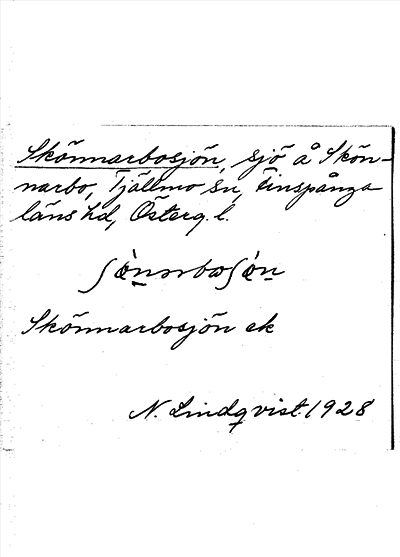 Skönnarbosjön, sjö å Skön-
narbo, Tjällmo sn, Finspånga
läns hd, Österg. l.
Skönnarbosjön ek
N. Lindqvist. 1928